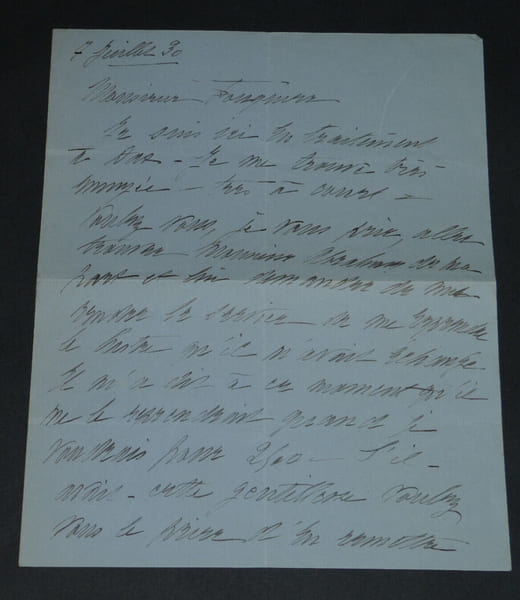 7 Juillet 30
Monsieur Fouquiera
Je suis ici en traitement
à Dax - Je me trouve très
ennuyée - très à court -
Voulez vous, je vous prie, aller
trouver Monsieur de ma
part et lui demander de me
rendre le service de me reprendre
le lustre qu'il m'avait échangé
Il m'a dit à ce moment qu'il
me le reprendrait quand je
voudrais pour 2500 - S'il
avait cette gentillesse voulez
vous le prier d'en remettre